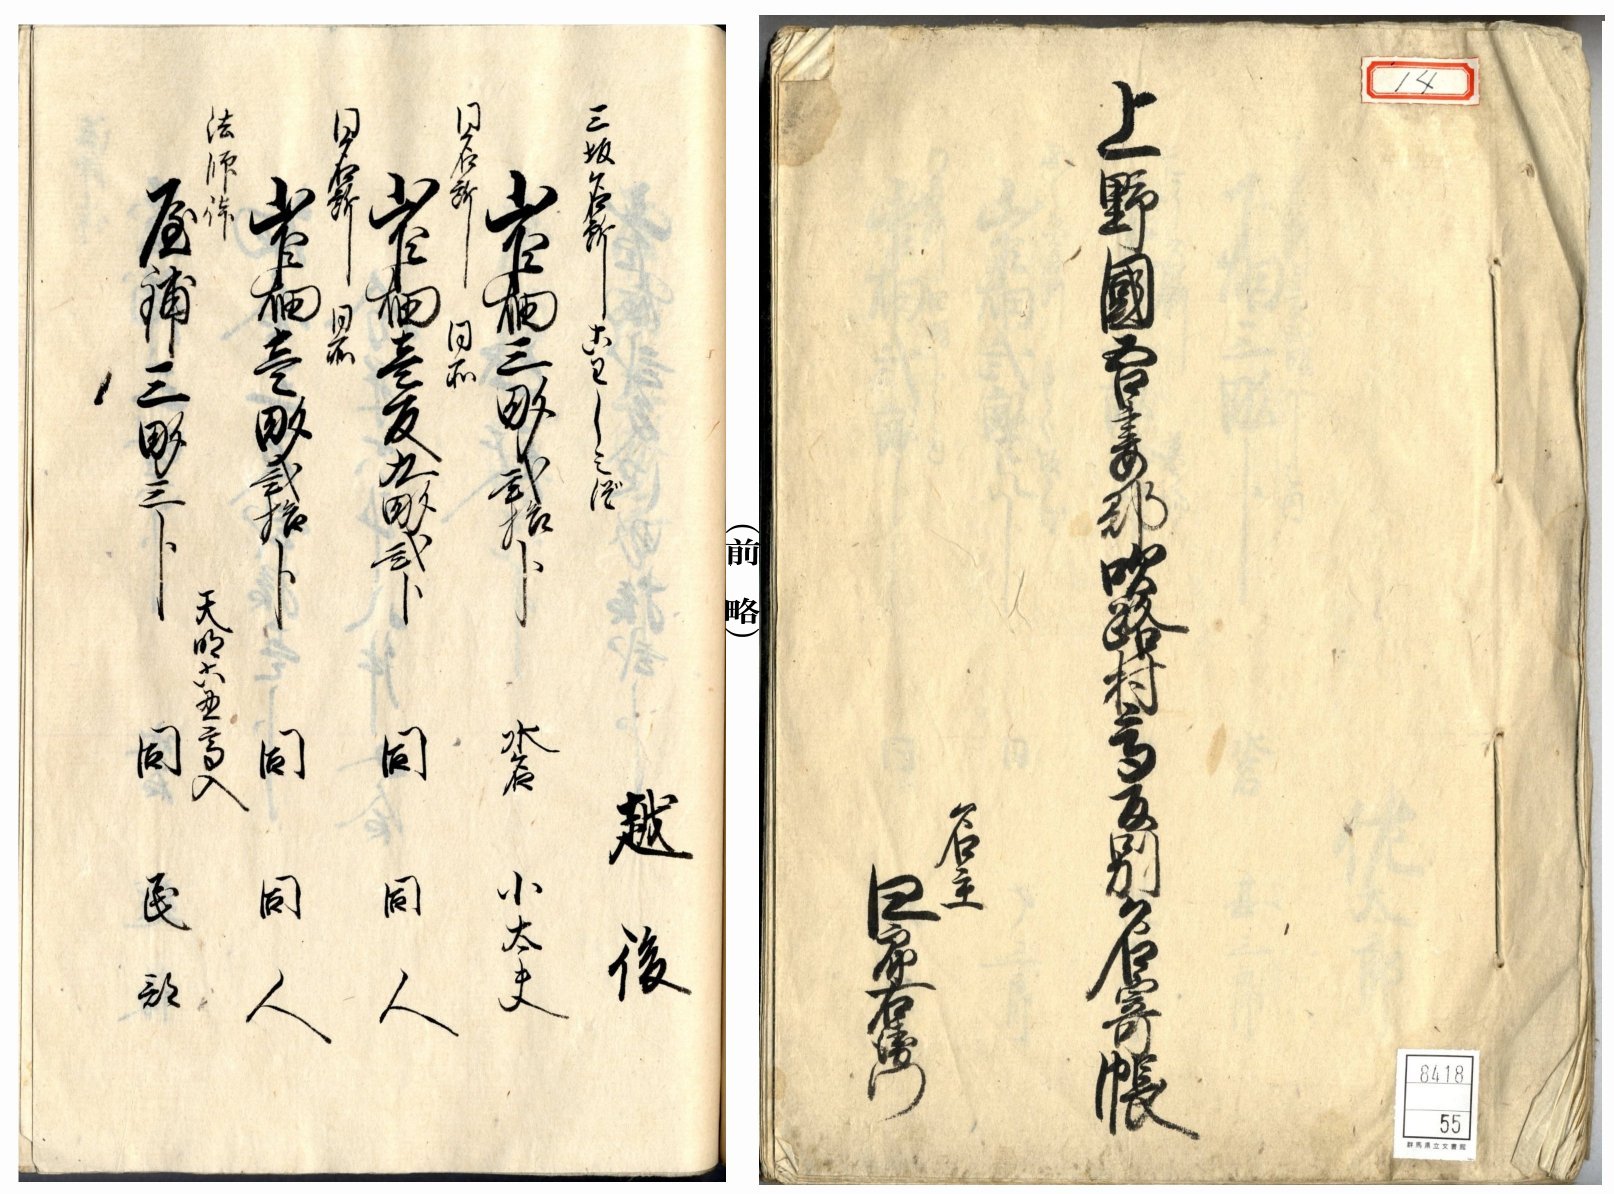 14
上野國吾妻郡吹路村高反別名寄帳
名主
四郎右衛門
8418
55
群馬県立文書館
（前略）
越後
三坂名所
山畑三畝弐拾卜
水呑 小太夫
同名所 同所
山畑壱反九畝弐卜
同 同人
同名所 同所
山畑壱畝弐拾卜
同 同人
法師
天明六 高入
屋鋪三畝三卜
同 民部